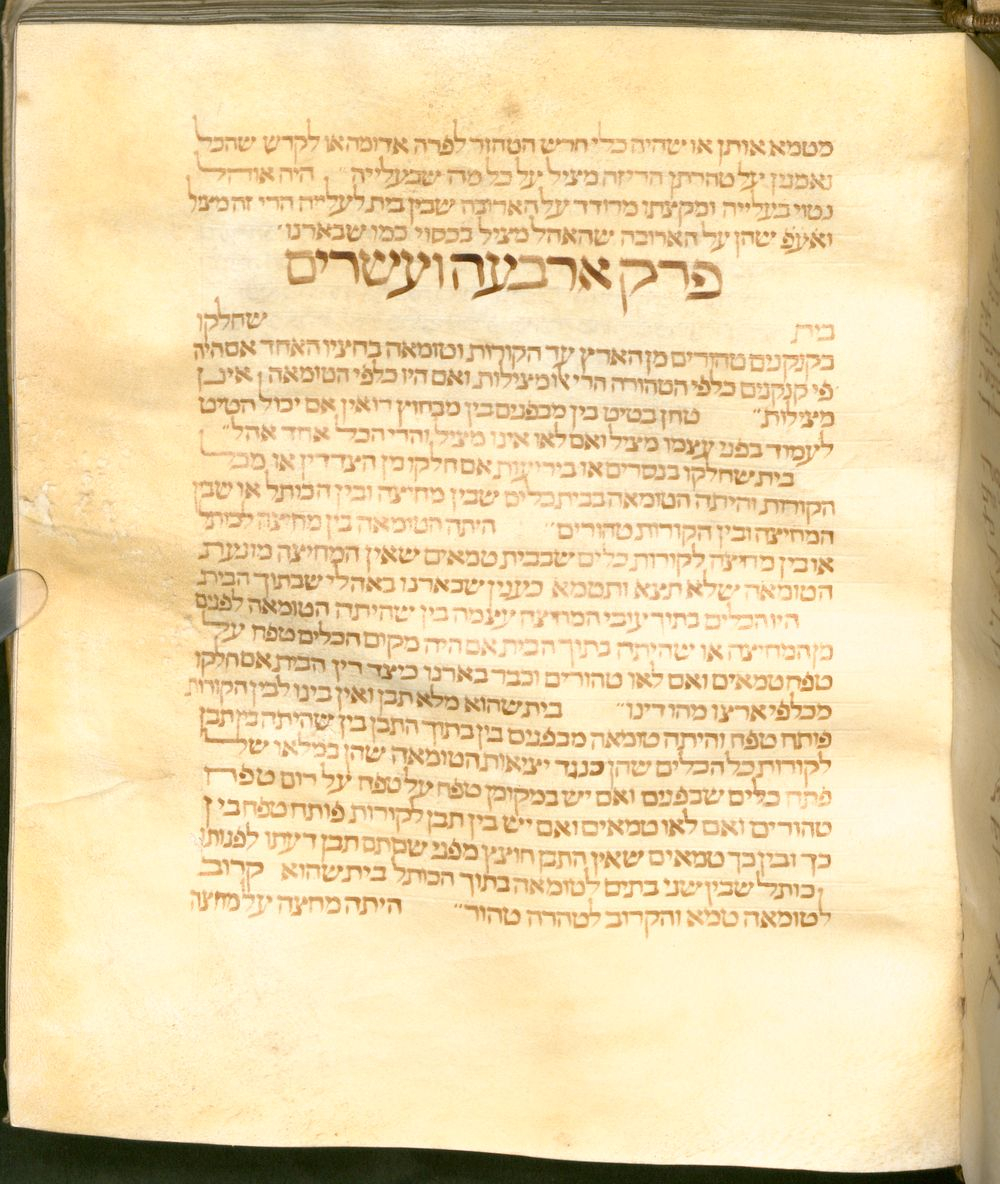 מטמא אותן או שהיה כלי חרש הטהור לפרה אדומה או לקדש שהכל
נאמנין על טהרתן הרי זה מציל על כל מה שבעלייה״ היה אוהל
נטוי בעלייה ומקצתו מרודד על הארובה שבין בית לעלייה הרי זה מציל
ואעפ שהן על הארובה שהאהל מציל בכסוי כמו שבארנו׳
פרק ארבעה ועשרים
בית שחלקו
בקנקנים טהורים מן הארץ עד הקורות וטומאה בחציו האחד אם היה
פי קנקנים כלפי הטהורה הרי אלו מצילות ואם היו כלפי הטומאה אינן
מצילות״ טחן בטיט בין מבפנים בין מבחוץ רואין אם יכול הטיט
לעמוד בפני עצמו מציל ואם לאו אינו מציל והרי הכל אחד אהל״
בית שחלקו בנסרים או ביריעות אם חלקו מן הצדדין או מכל
הקורות והיתה הטומאה בבית כלים שבין מחיצה ובין הכותל או שבין
המחיצה ובין הקורות טהורים״ היתה הטומאה בין מחיצה לכותל
או בין מחיצה לקורות כלים שבבית טמאים שאין המחיצה מונעת
הטומאה שלא תצא ותטמא כענין שבארנו באהלי שבתוך הבית
היו הכלים בתוך עובי המחיצה עצמה בין שהיתה הטומאה לפנים
מן המחיצה או שהיתה בתוך הבית אם היה מקום הכלים טפח על
טפח טמאים ואם לאו טהורים וכבר בארנו כיצד דין הבית אם חלקו
מכלפי ארצו מהו דינו״ בית שהוא מלא תבן ואין בינו לבין הקורות
פותח טפח והיתה טומאה מבפנים בין בתוך התבן בין שהיתה בין תבן
לקורות כל הכלים שהן כנגד יציאות הטומאה שהן במלאו של
פתח כלים שבפנים ואם יש במקומן טפח על טפח על רום טפח
טהורים ואם לאו טמאים ואם יש בין תבן לקורות פותח טפח בין
כך ובין כך טמאים שאין התבן חוצץ מפני שסתם תבן דעתו לפנותו
כותל שבין שני בתים לטומאה בתוך הכותל בית שהוא קרוב
לטומאה טמא והקרוב לטהרה טהור״ היתה מחצה על מחצה